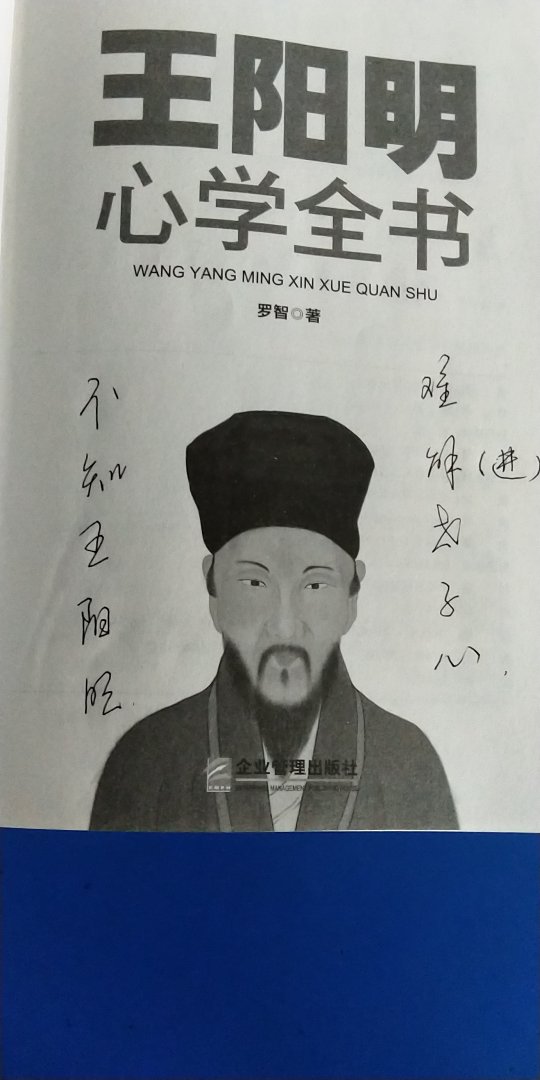 王阳明
心学全书
WANG YANG MING XIN XUE QUAN SHU
罗智◎著
不知王阳明.
难解(进)老子心.
企业管理出版社
MANAGEMENT